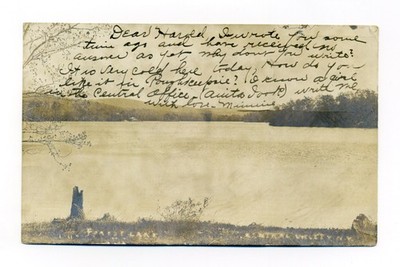 Dear Harold, I wrote you some
time ago and have received no
answer as yet why dont you write?
It is very cold here today, How do you
like it in Poukeepsie? I know a girl
in the Central Office, (Anita Took) write me
with love - Minnie
Forest Lake
Central Valley N.Y.